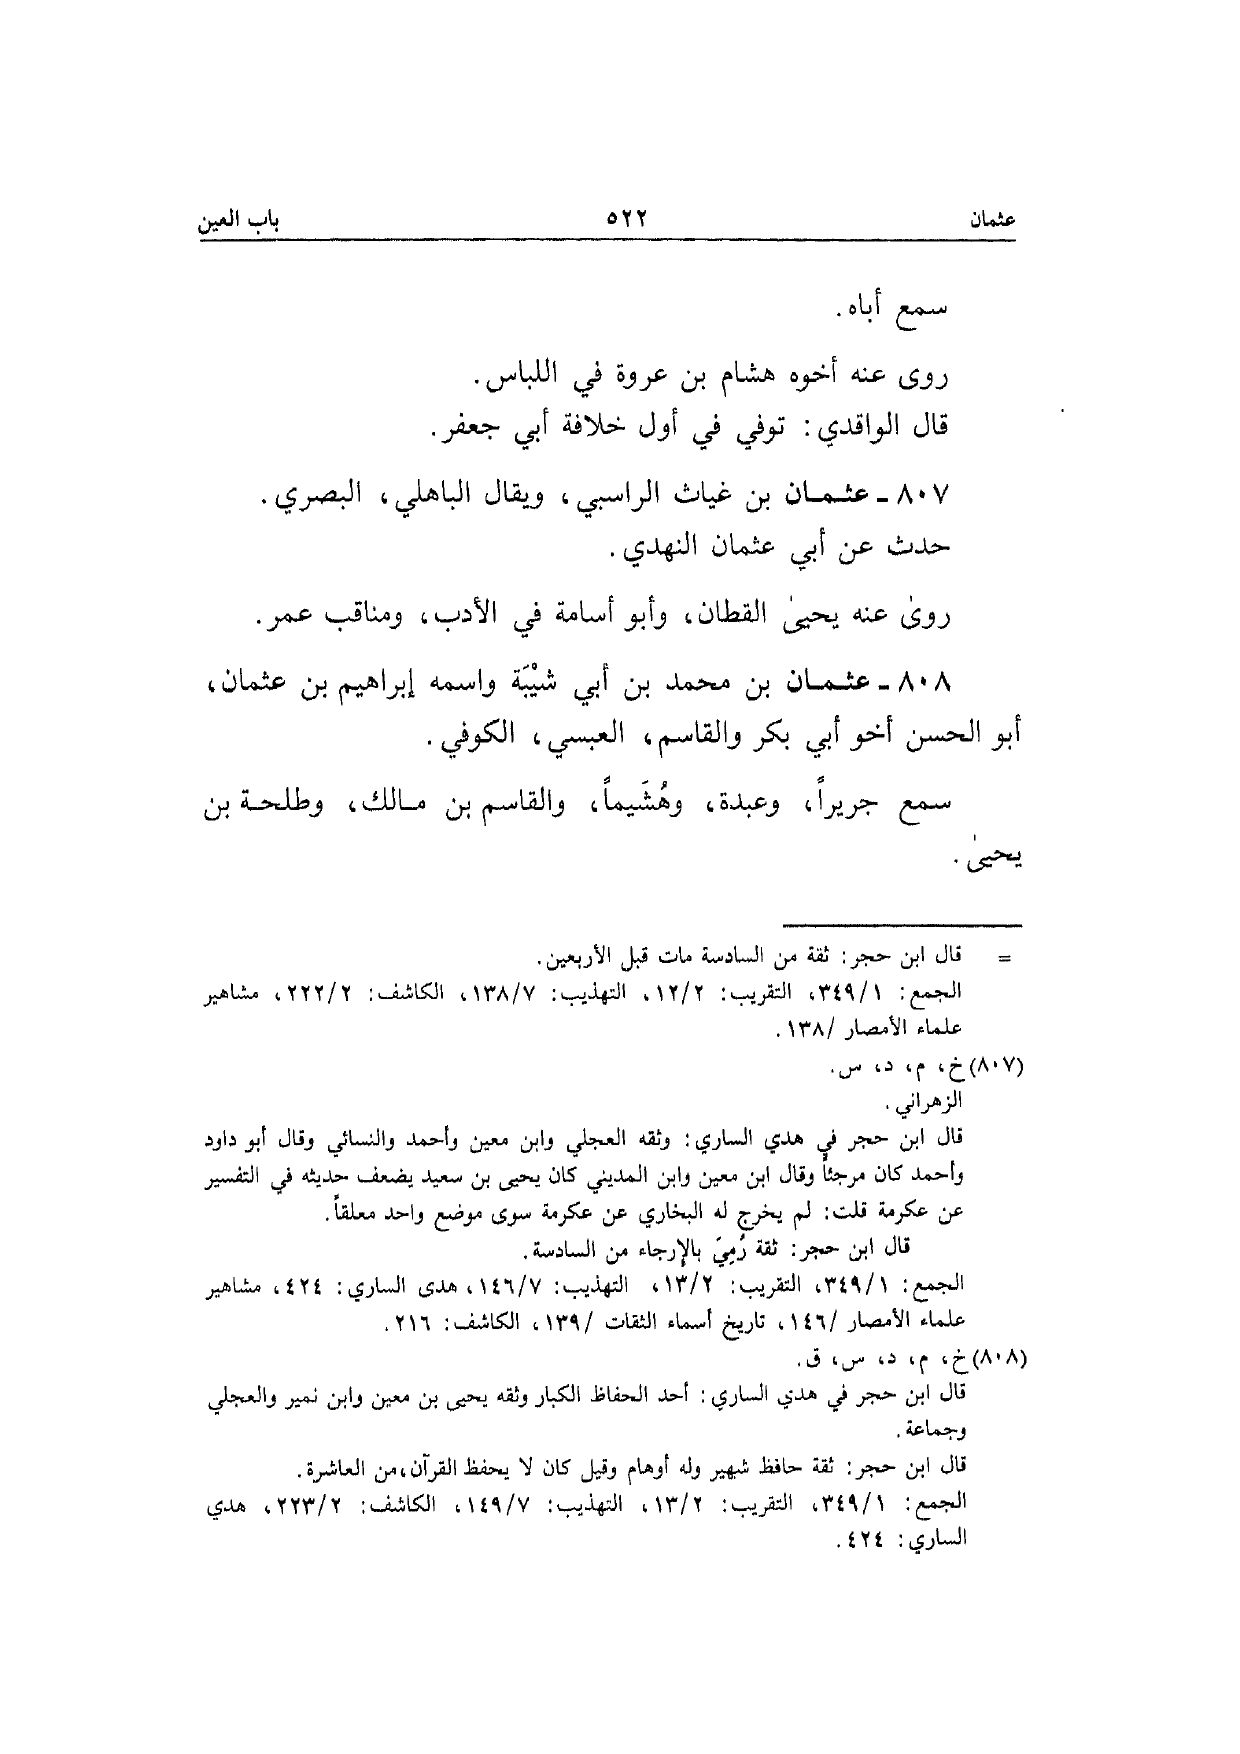 عثمان ٥٢٢ باب العين
سمع أباه.
روى عنه أخوه هشام بن عروة في اللباس.
قال الواقدي: توفي في أول خلافة أبي جعفر.
٨٠٧ ـ عثمان بن غياث الراسبي، ويقال الباهلي، البصري.
حدث عن أبي عثمان النهدي.
روىٰ عنه يحيىٰ القطان، وأبو أسامة في الأدب، ومناقب عمر.
٨٠٨ ـ عثمان بن محمد بن أبي شَيْبَة واسمه إبراهيم بن عثمان،
أبو الحسن أخو أبي بكر والقاسم، العبسي، الكوفي.
سمع جريراً، وعبدة، وهُشَيماً، والقاسم بن مالك، وطلحة بن
يحيىٰ.
= قال ابن حجر: ثقة من السادسة مات قبل الأربعين.
الجمع: ٣٤٩/١، التقريب: ١٢/٢، التهذيب: ١٣٨/٧، الكاشف: ٢٢٢/٢، مشاهير
علماء الأمصار /١٣٨.
(٨٠٧) خ، م، د، س.
الزهراني.
قال ابن حجر في هدي الساري: وثقه العجلي وابن معين وأحمد والنسائي وقال أبو داود
وأحمد كان مرجئاً وقال ابن معين وابن المديني كان يحيى بن سعيد يضعف حديثه في التفسير
عن عكرمة قلت: لم يخرج له البخاري عن عكرمة سوى موضع واحد معلقاً.
قال ابن حجر: ثقة رُمِيَ بالإرجاء من السادسة.
الجمع: ٣٤٩/١، التقريب: ١٣/٢، التهذيب: ١٤٦/٧، هدى الساري: ٤٢٤، مشاهير
علماء الأمصار /١٤٦، تاريخ أسماء الثقات /١٣٩، الكاشف: ٢١٦.
(٨٠٨) خ، م، د، س، ق.
قال ابن حجر في هدي الساري: أحد الحفاظ الكبار وثقه يحيى بن معين وابن نمير والعجلي
وجماعة.
قال ابن حجر: ثقة حافظ شهير وله أوهام وقيل كان لا يحفظ القرآن، من العاشرة.
الجمع: ٣٤٩/١، التقريب: ١٣/٢، التهذيب: ١٤٩/٧، الكاشف: ٢٢٣/٢، هدي
الساري: ٤٢٤.